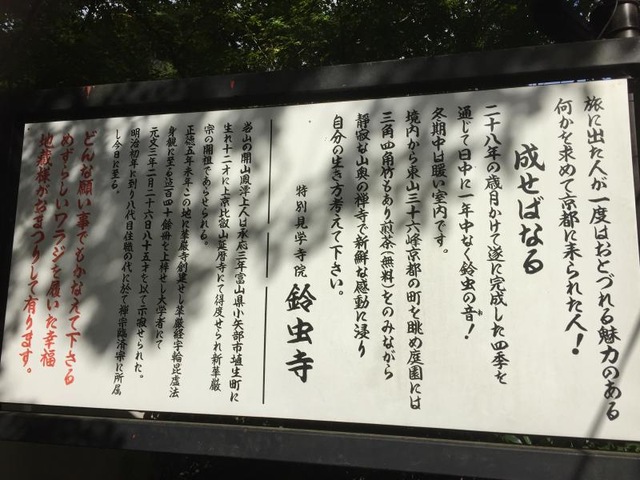 旅に出た人が一度はおとづれる魅力のある
何かを求めて京都に来られた人!
成せばなる
二十八年の歳月かけて遂に完成した四季を
通じて日中に一年中なく鈴虫の音!
冬期中は暖い室内です。
境内から東山三十六峰京都の町を眺め庭園には
三角四角竹もあり煎茶(無料)をのみながら
静寂な山奥の禅寺で新鮮な感動に浸り
自分の生き方考えて下さい。
特別見学寺院 鈴虫寺
当山の開山鳳潭上人は承応三年富山県小矢部市埴生町に
生れ十二才にて上京比叡山延暦寺にて得度せられ新華厳
宗の開祖であらせられる。
正徳五年来年この地に華厳寺創建せし華厳経宇輪毘盧法
身観に至る迄百四十餘冊を上梓せし大学者にて
元文三年二月二十六日八十五才を以て示寂せられた。
明治初年に到り八代目住職の代に於て禅宗臨済宗に所属
し今日に至る。
どんな願い事でもかなえて下さる
めずらしいワラジを履いた幸福
地蔵様がおまつりして有ります。